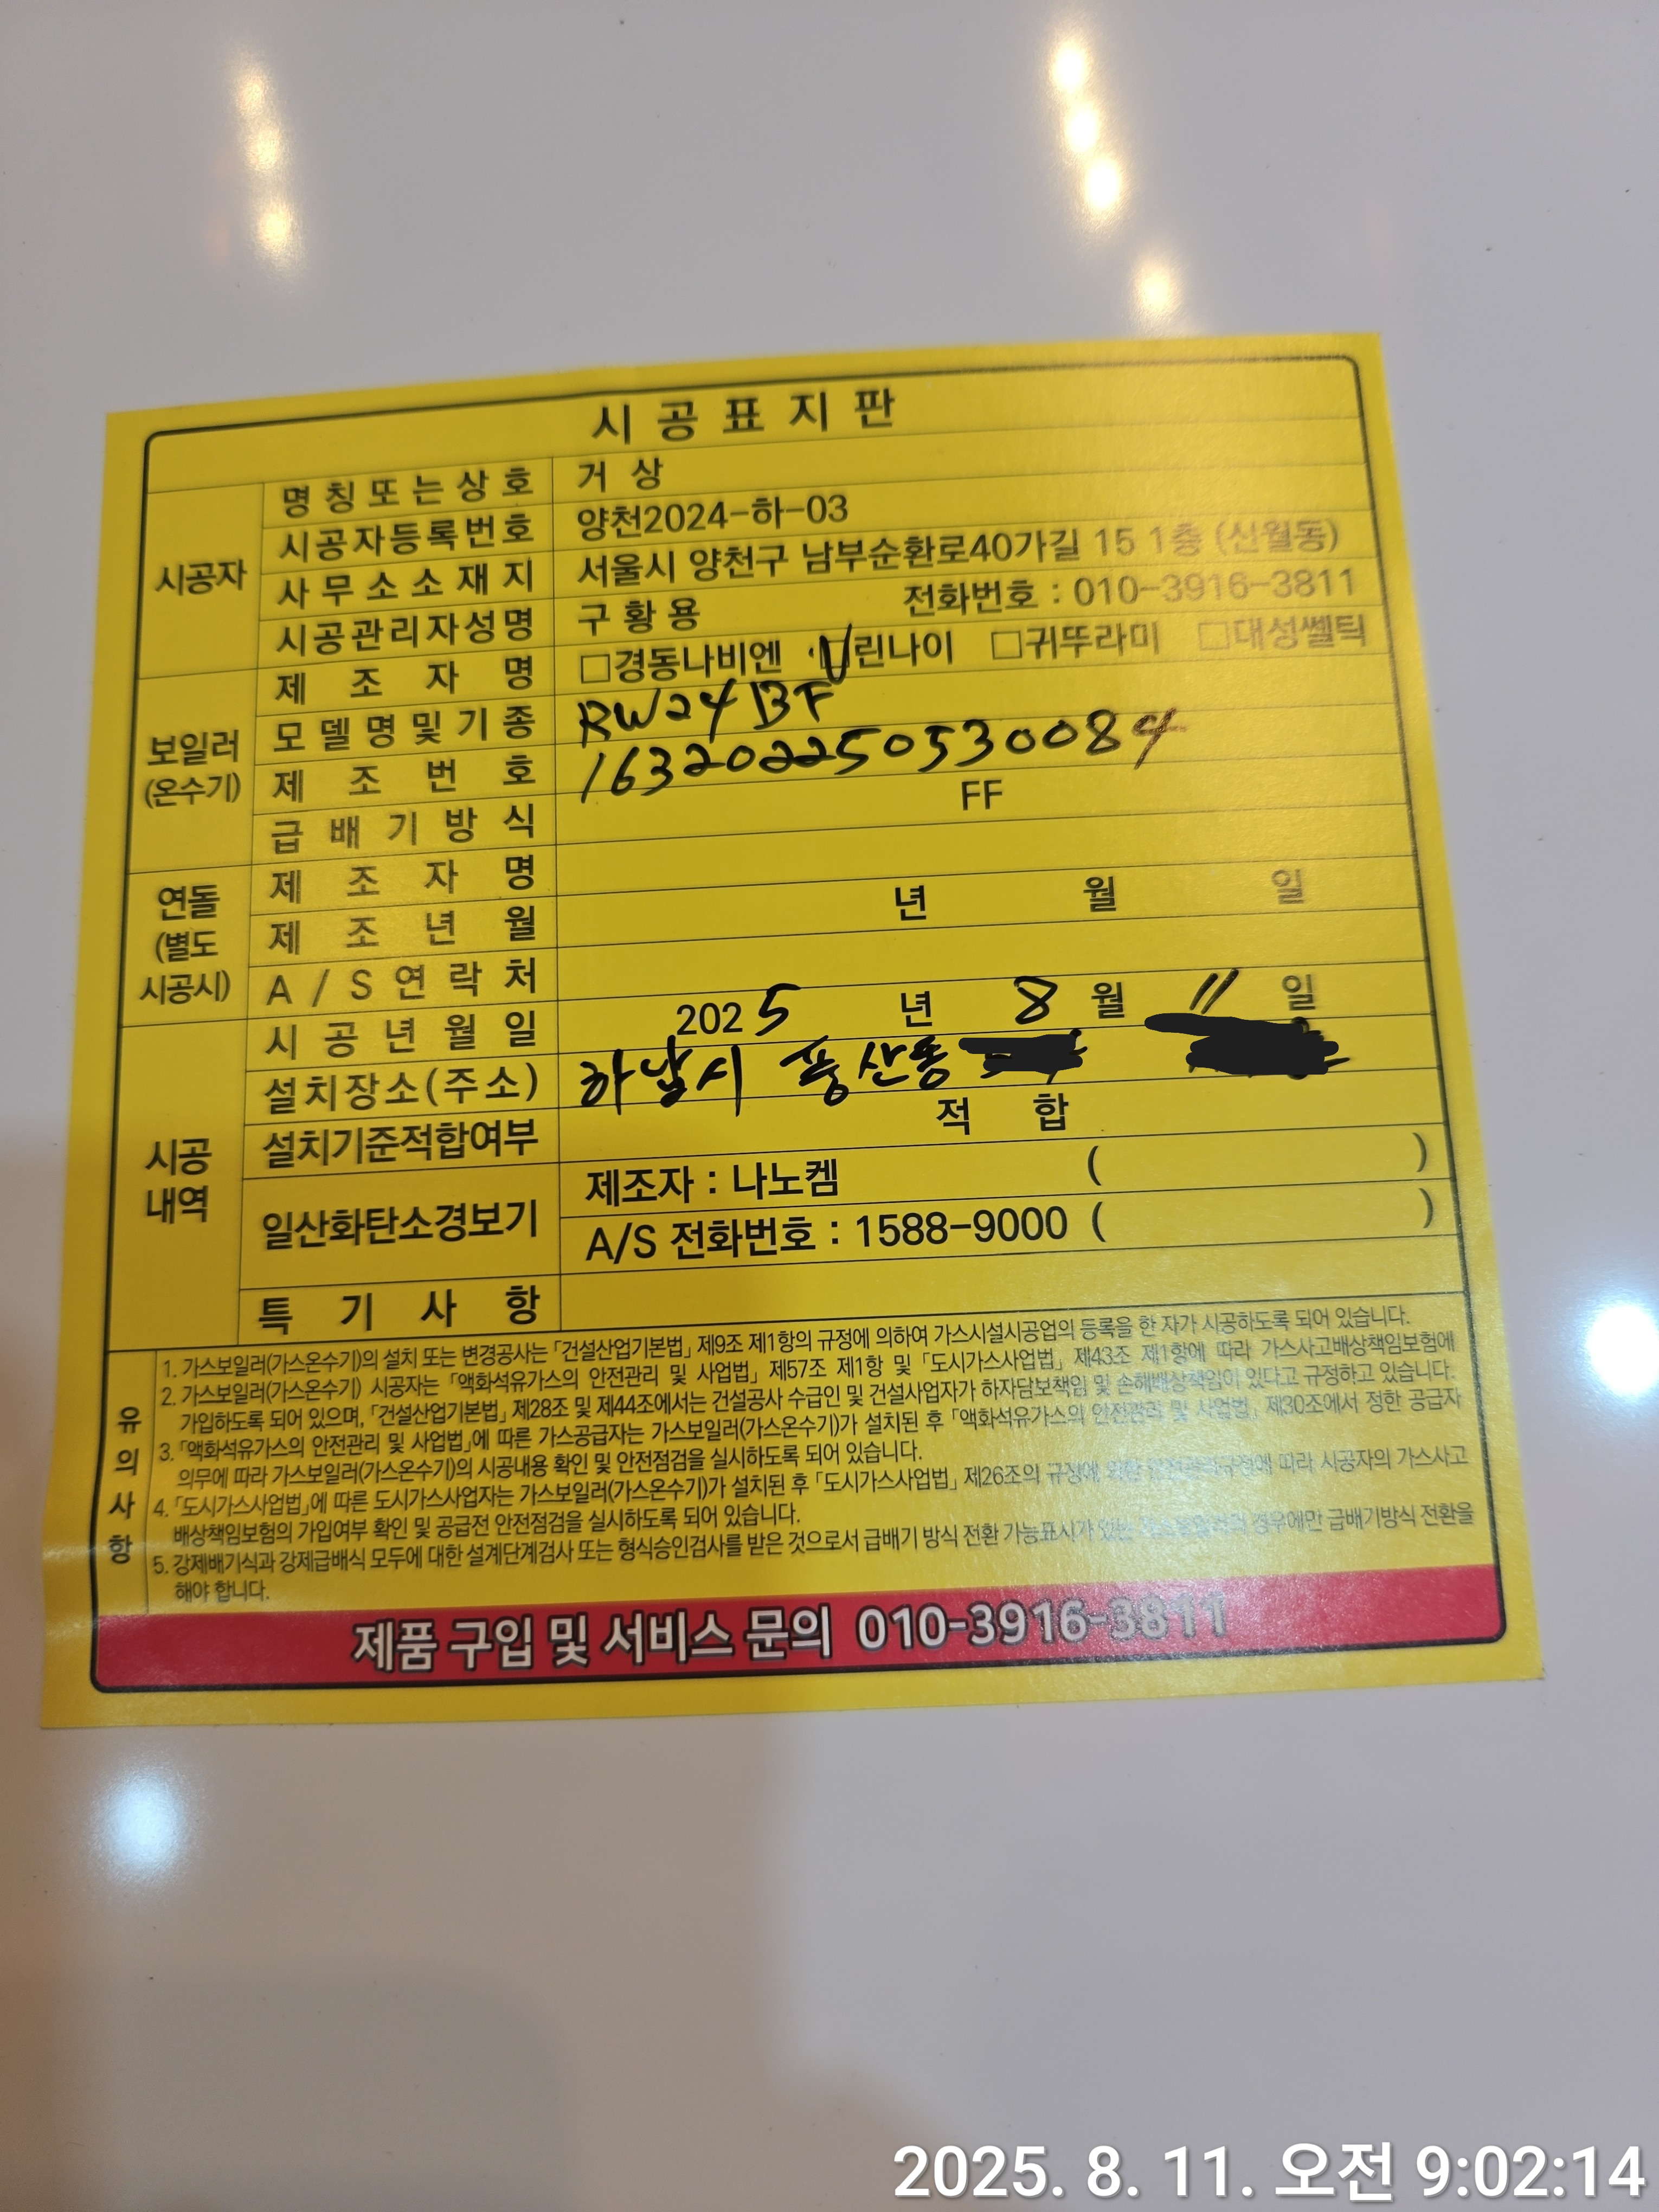 시공표지판
시공자
명칭또는상호 거상
시공자등록번호 양천2024-하-03
사무소소재지 서울시 양천구 남부순환로40가길 15 1층 (신월동)
시공관리자성명 구황용 전화번호 : 010-3916-3811
보일러
(온수기)
제조자명 □경동나비엔 □린나이 □귀뚜라미 □대성쎌틱
모델명및기종 RW24BF
제조번호 163202250530084
급배기방식 FF
연돌
(별도
시공시)
제조자명
제조년월 년 월 일
A/S연락처
시공
내역
시공년월일 2025년 8월 11일
설치장소(주소) 하남시 풍산동
설치기준적합여부 적합
일산화탄소경보기 제조자 : 나노켐 ( )
A/S 전화번호 : 1588-9000 ( )
특기사항
유의사항
1. 가스보일러(가스온수기)의 설치 또는 변경공사는 「건설산업기본법」 제9조 제1항의 규정에 의하여 가스시설시공업의 등록을 한 자가 시공하도록 되어 있습니다.
2. 가스보일러(가스온수기) 시공자는 「액화석유가스의 안전관리 및 사업법」 제57조 제1항 및 「도시가스사업법」 제43조 제1항에 따라 가스사고배상책임보험에
가입하도록 되어 있으며, 「건설산업기본법」 제28조 및 제44조에서는 건설공사 수급인 및 건설사업자가 하자담보책임 및 손해배상책임이 있다고 규정하고 있습니다.
3. 「액화석유가스의 안전관리 및 사업법」에 따른 가스공급자는 가스보일러(가스온수기)가 설치된 후 「액화석유가스의 안전관리 및 사업법」 제30조에서 정한 공급자
의무에 따라 가스보일러(가스온수기)의 시공내용 확인 및 안전점검을 실시하도록 되어 있습니다.
4. 「도시가스사업법」에 따른 도시가스사업자는 가스보일러(가스온수기)가 설치된 후 「도시가스사업법」 제26조의 규정에 따라 시공자의 가스사고
배상책임보험의 가입여부 확인 및 공급전 안전점검을 실시하도록 되어 있습니다.
5. 강제배기식과 강제급배식 모두에 대한 설계단계검사 또는 형식승인검사를 받은 것으로서 급배기 방식 전환 가능표시가 있는 경우에만 급배기방식 전환을
해야 합니다.
제품 구입 및 서비스 문의 010-3916-3811
2025. 8. 11. 오전 9:02:14